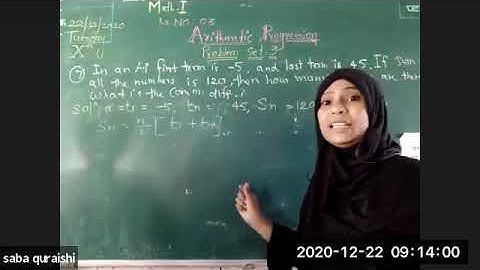 Math-I
22/12/2020
Tuesday
Arithmetic Progression
Problem Set-3
In an AP first term is -5 and last term is 45. If sum
all the numbers is 120, then how many are then
what is the Com. diff.?
a = t₁ = -5, tn = 45, Sn = 120
Sn = n/2 [t₁ + tn]
saba quraishi
2020-12-22 09:14:00